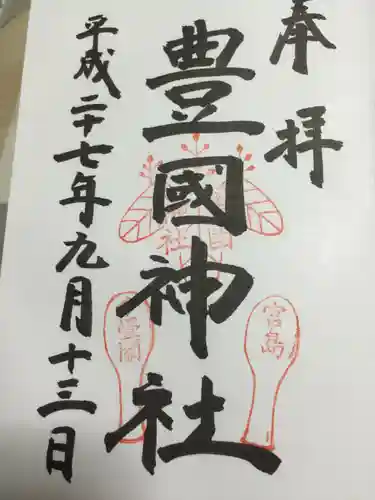 奉拝
豊國神社
宮島
平成二十七年九月十三日